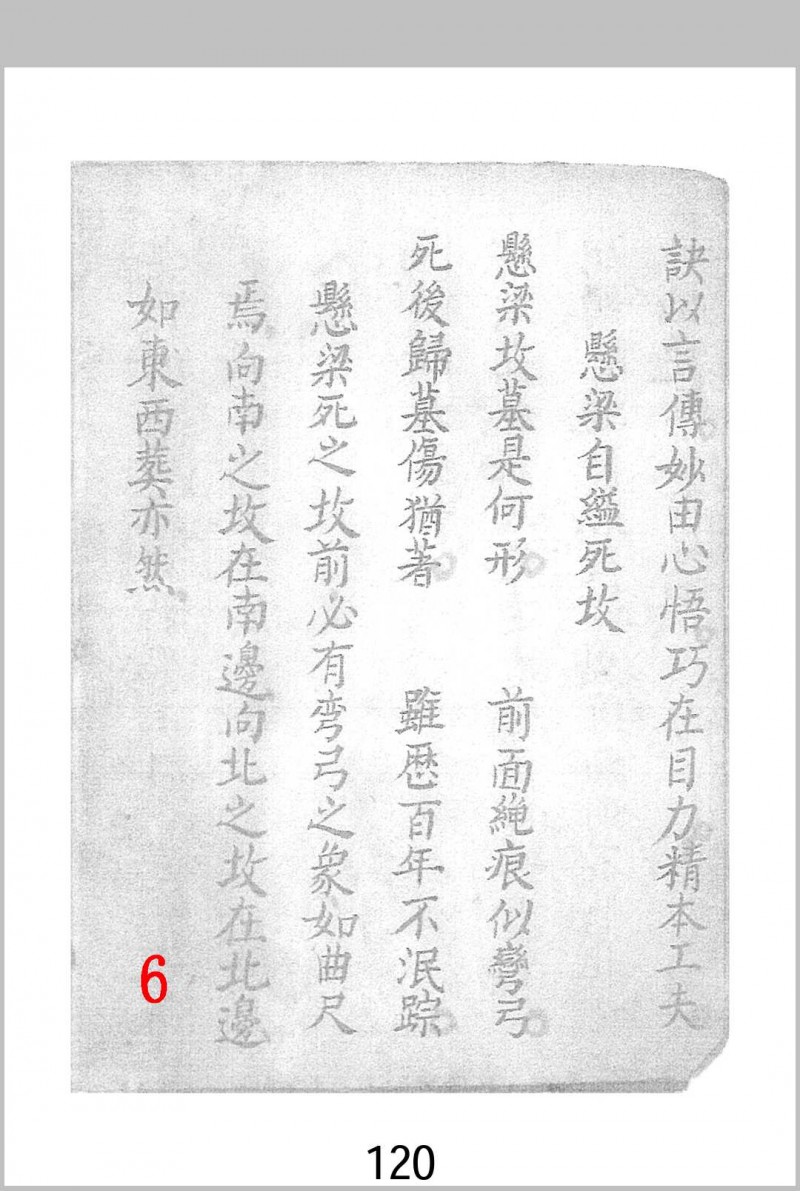 訣以言傳妙由心悟巧在目力精本工夫
懸梁自縊死坟
懸梁坟墓是何形　前面繩痕似彎弓
死後歸墓傷猶著　雖歷百年不泯踪
懸梁死之坟前必有弯弓之象如曲尺
焉向南之坟在南邊向北之坟在北邊
如東西葬亦然
6
120